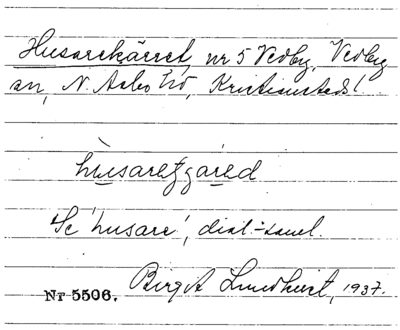 Husarekärret, nr 5 Vedby, Vedby
sn, N. Åsbo hd, Kristianstads l.
Se 'husare', dial.-saml.
Nr 5506. Birgit Lundkvist, 1937.